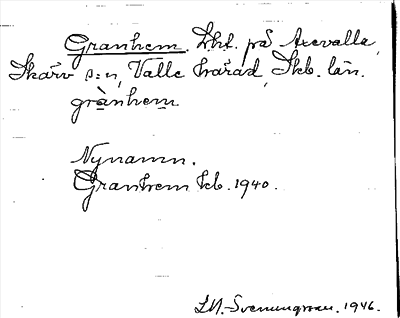 Granhem. Lht. på Axevalla,
Skärv s:n, Valle härad, Skb. län.
grànhem
Nynamn.
Granhem kb. 1940.
L.N. Svenungsson. 1946.